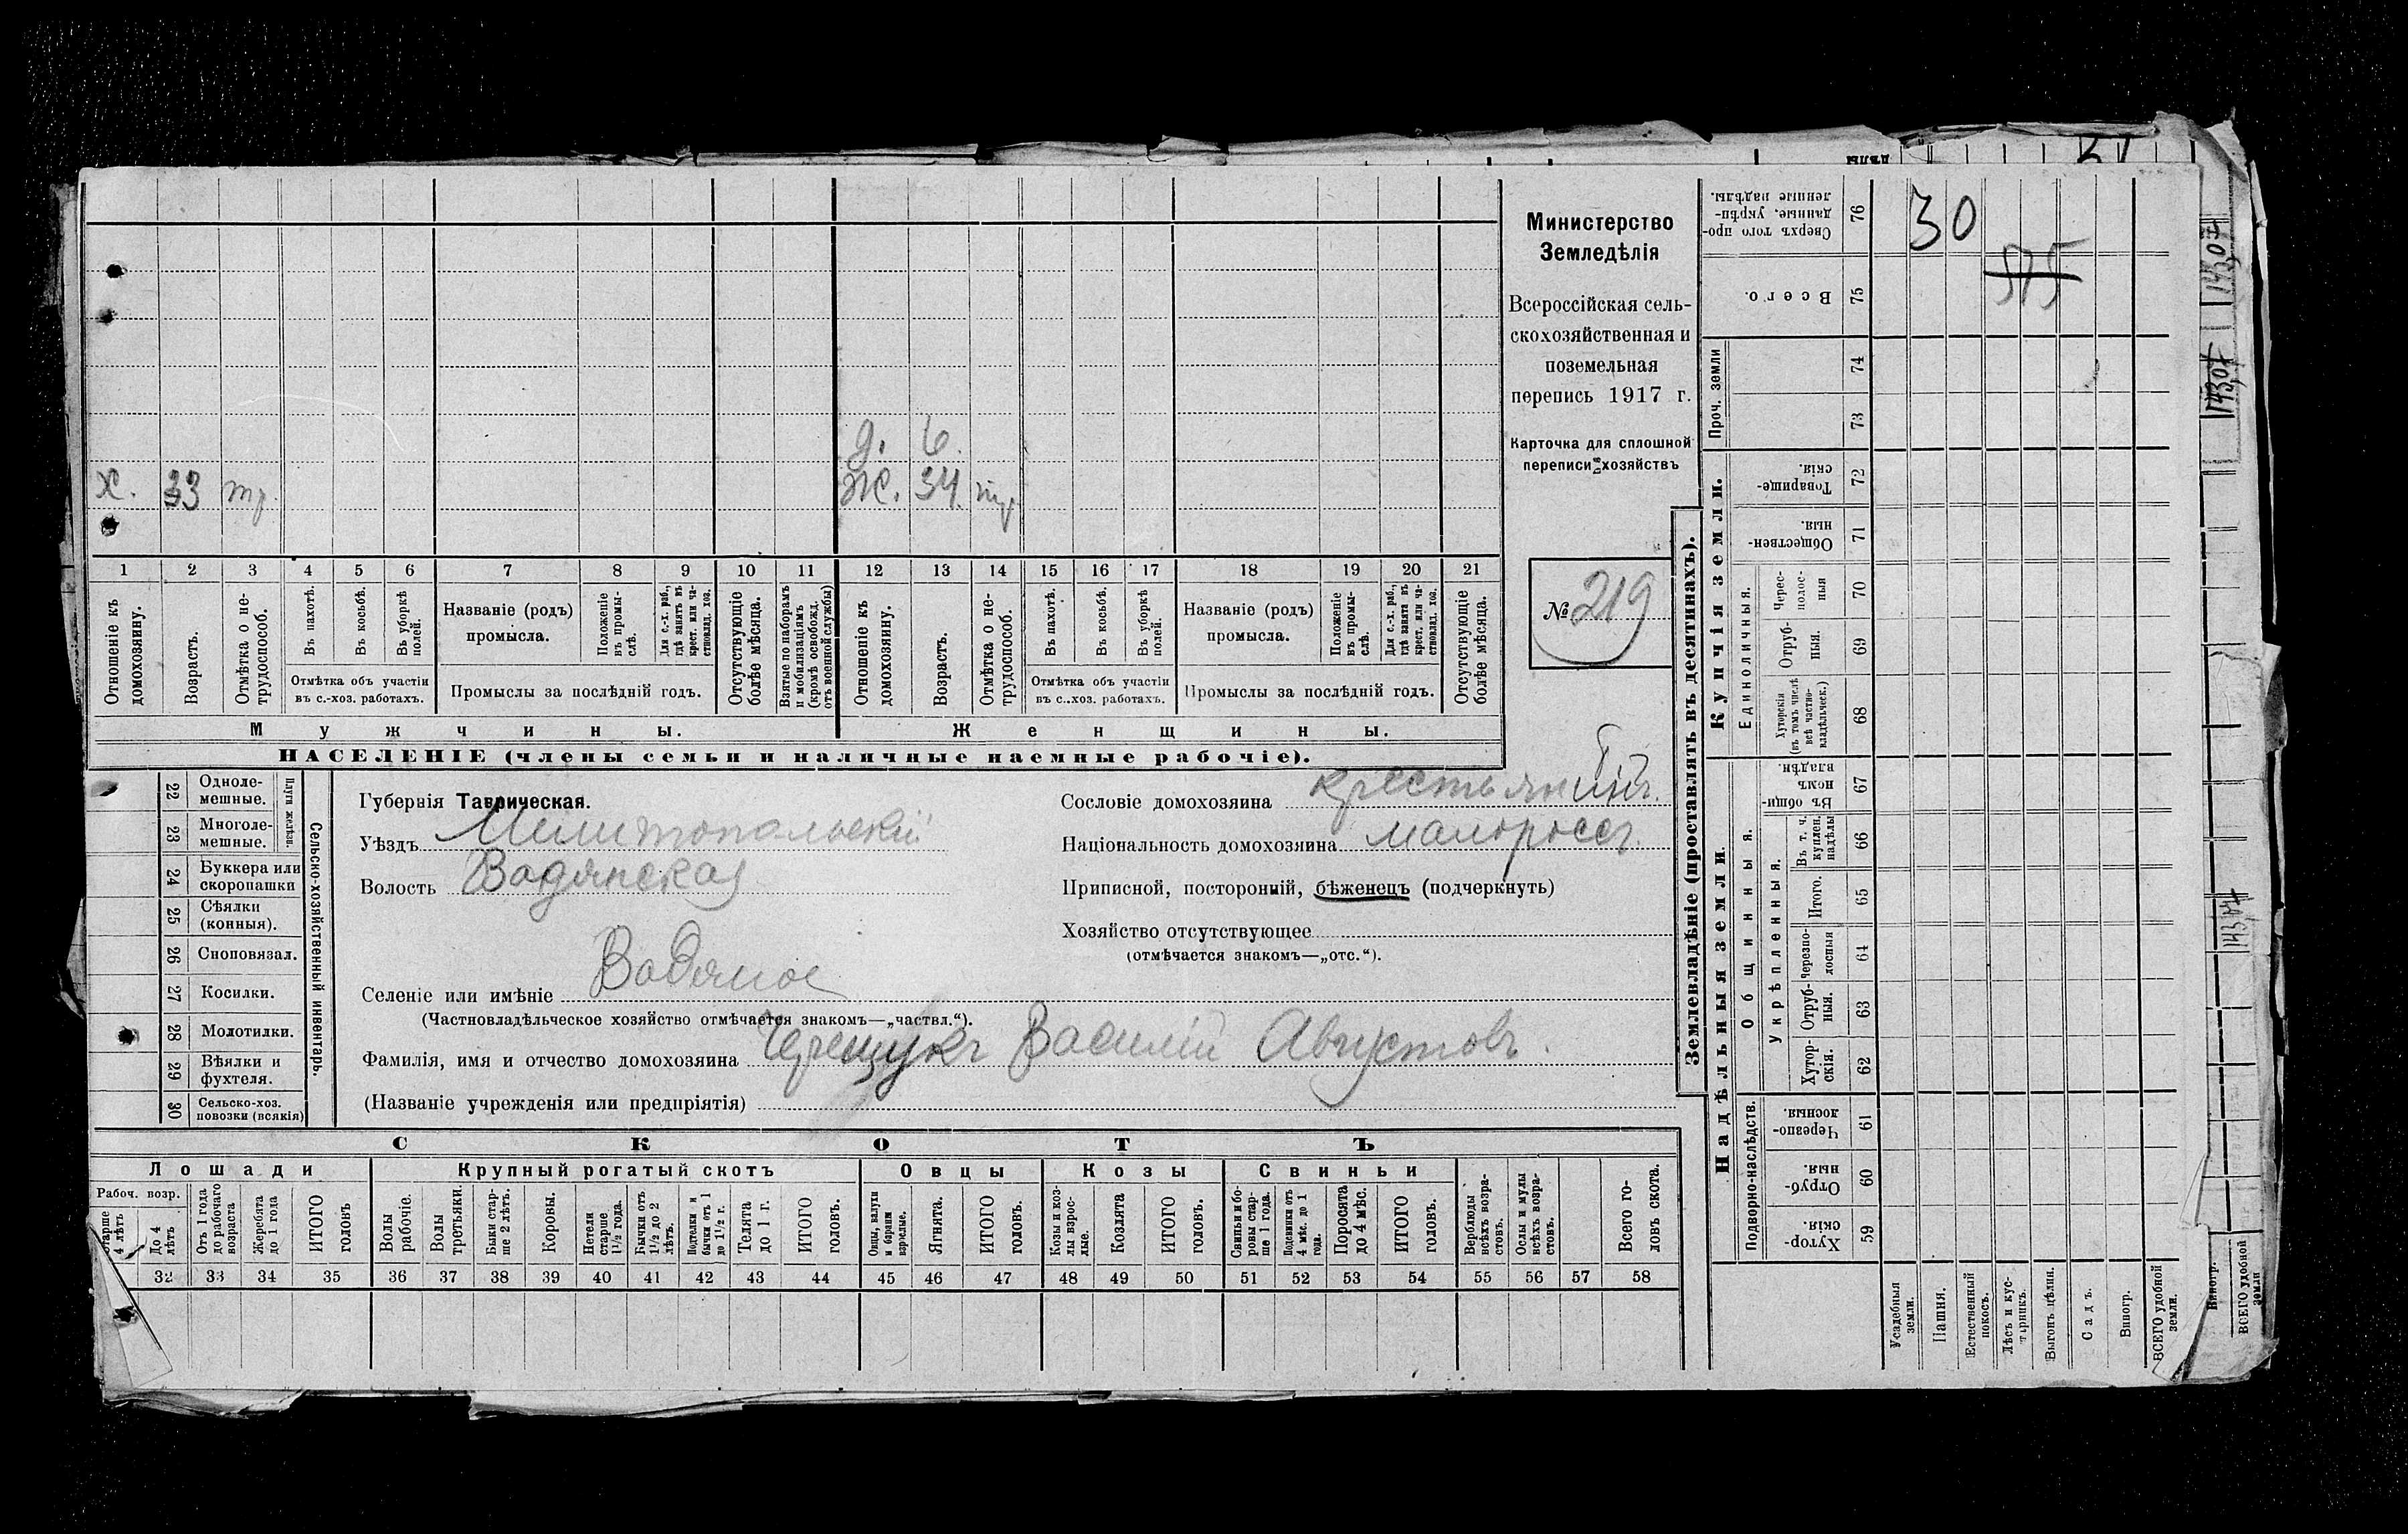 30
575
д. 6.
х. 33 тр. Ж. 34. тр
1 2 3 4 5 6 7 8 9 10 11 12 13 14 15 16 17 18 19 20 21
Отношеніе къ домохозяину.
Возрастъ.
Отмѣтка о не-трудоспособ.
Въ пахотѣ.
Въ косьбѣ.
Въ уборкѣ полей.
Отмѣтка объ участіи
въ с.-хоз. работахъ.
Названіе (родъ)
промысла.
Положеніе въ промы-слѣ.
Для с.-х. раб., гдѣ занятъ въ крест. или ча-стновлад. хоз.
Промыслы за послѣдній годъ.
Отсутствующіе болѣе мѣсяца.
Взятые по наборамъ и мобилизаціямъ (кромѣ освобожд. отъ военной службы)
Отношеніе къ домохозяину.
Возрастъ.
Отмѣтка о не-трудоспособ.
Въ пахотѣ.
Въ косьбѣ.
Въ уборкѣ полей.
Отмѣтка объ участіи
въ с..хоз. работахъ.
Названіе (родъ)
промысла.
Положеніе въ промы-слѣ.
Для с.-х. раб., гдѣ занята въ крест. или ча-стновлад. хоз.
Промыслы за послѣдній годъ.
Отсутствующіе болѣе мѣсяца.
Мужчины. Женщины.
НАСЕЛЕНІЕ (члены семьи и наличные наемные рабочіе).
Министерство
Земледѣлія
Всероссійская сель-
скохозяйственная и
поземельная
перепись 1917 г.
Карточка для сплошной
переписи хозяйствъ
№ 219
22 Одноле-
мешные.
23 Многоле-
мешные.
Плуги желѣзн.
24 Буккера или
скоропашки
25 Сѣялки
(конныя).
26 Сноповязал.
27 Косилки.
28 Молотилки.
29 Вѣялки и
фухтеля.
30 Сельско-хоз.
повозки (всякія)
Сельско-хозяйственный инвентарь.
Губернія Таврическая.
Уѣздъ Мелитопольскій
Волость Водянская
Селеніе или имѣніе Водяное
(Частновладѣльческое хозяйство отмѣчается знакомъ—„частвл.“).
Фамилія, имя и отчество домохозяина Черещукъ Василій Августовъ.
(Названіе учрежденія или предпріятія)
Сословіе домохозяина крестьянинъ.
Національность домохозяина малороссъ.
Приписной, посторонній, бѣженецъ (подчеркнуть)
Хозяйство отсутствующее
(отмѣчается знакомъ—„отс.“).
СКОТЪ
Лошади Крупный рогатый скотъ Овцы Козы Свиньи
Рабоч. возр.
Старше 4 лѣтъ
До 4 лѣтъ
Отъ 1 года до рабочаго возраста
Жеребята до 1 года
ИТОГО головъ
Волы рабочіе.
Волы третьяки.
Быки стар-ше 2 лѣтъ.
Коровы.
Нетели старше 1½ года.
Бычки отъ 1½ до 2 лѣтъ.
Подтелки и бычки отъ 1 до 1½ г.
Телята до 1 г.
ИТОГО головъ.
Овцы, валухи и бараны взрослые.
Ягнята.
ИТОГО головъ.
Козы и коз-лы взрос-лые.
Козлята
ИТОГО головъ.
Свиньи и бо-ровы стар-ше 1 года.
Подсвинки отъ 4 мѣс. до 1 года.
Поросята до 4 мѣс.
ИТОГО головъ.
Верблюды всѣхъ возра-стовъ.
Ослы и мулы всѣхъ возра-стовъ.
Всего го-ловъ скота.
32 33 34 35 36 37 38 39 40 41 42 43 44 45 46 47 48 49 50 51 52 53 54 55 56 57 58
Землевладѣніе (проставлять въ десятинахъ).
Купчія земли.
Надѣльныя земли.
Сверхъ того про-данные, укрѣп-ленные надѣлы. 76
Всего. 75
Проч. земли 74
73
Товарище-скія. 72
Обществен-ныя. 71
Единоличныя.
Черес-полос-ныя 70
Отруб-ныя. 69
Хуторскія (въ томъ числѣ всѣ частно-владѣльческ.) 68
Общинныя.
Въ общи-номъ владѣн. 67
Укрѣпленныя.
Въ т. ч. куплен. надѣлы 66
Итого. 65
Черезпо-лосныя 64
Отруб-ныя. 63
Хутор-скія. 62
Подворно-наслѣдств.
Черезпо-лосныя. 61
Отруб-ныя. 60
Хутор-скія. 59
Усадебныя земли.
Пашня.
Естественный покосъ.
Лѣсъ и кус-тарникъ.
Выгонъ цѣлин.
Садъ.
Виногр.
ВСЕГО удобной земли.
Виногр.
ВСЕГО удобной земли